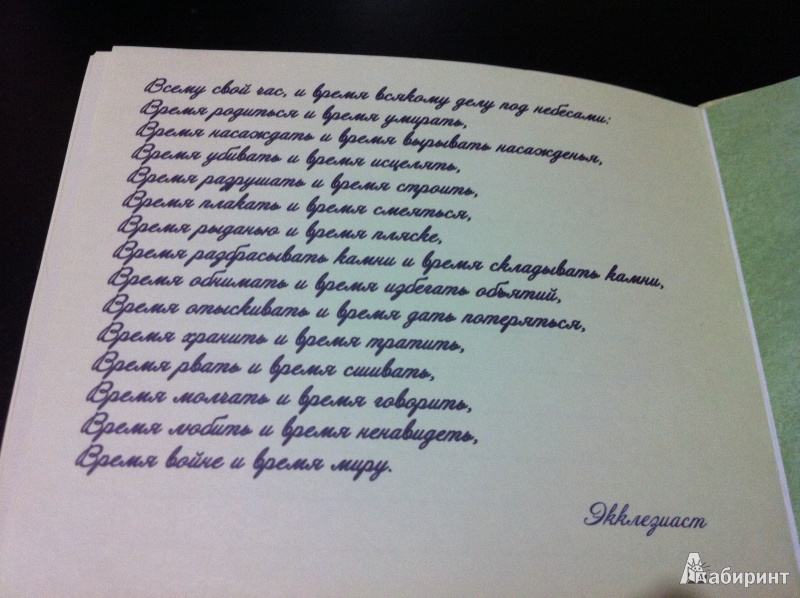 Всему свой час, и время всякому делу под небесами:
Время родиться и время умирать,
Время насаждать и время вырывать насажденья,
Время убивать и время исцелять,
Время разрушать и время строить,
Время плакать и время смеяться,
Время рыданью и время пляске,
Время разбрасывать камни и время складывать камни,
Время обнимать и время избегать объятий,
Время отыскивать и время дать потеряться,
Время хранить и время тратить,
Время рвать и время сшивать,
Время молчать и время говорить,
Время любить и время ненавидеть,
Время войне и время миру.
Экклезиаст
Лабиринт